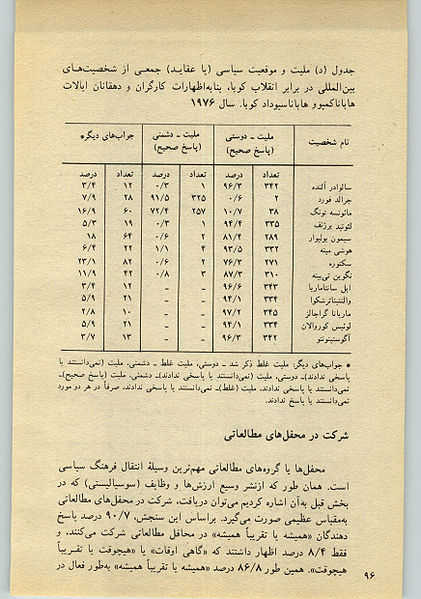 جدول (د) ملیت و موقعیت سیاسی (یا عقایـد) جمعـی از شخصیت‌هـای
بین‌المللی در برابر انقلاب کوبا، بنابه‌اظهارات کارگران و دهقانان ایالات
هاباناکمپوو هاباناسیوداد کوبا. سال ۱۹۷۶
نام شخصیت ملیت ـ دوستی ملیت ـ دشمنی جواب‌های دیگر*
(پاسخ صحیح) (پاسخ صحیح)
تعداد درصد تعداد درصد تعداد درصد
سالوادر آلنده ۳۴۲ ۹۶/۳ ۱ ۰/۳ ۱۲ ۳/۴
جرالد فورد ۲ ۰/۶ ۳۲۵ ۹۱/۵ ۲۸ ۷/۹
مائوتسه تونگ ۳۸ ۱۰/۷ ۲۵۷ ۷۲/۴ ۶۰ ۱۶/۹
لئونید برژنف ۳۳۵ ۹۴/۴ ۱ ۰/۳ ۱۹ ۵/۳
سیمون بولیوار ۲۸۹ ۸۱/۴ ۲ ۰/۶ ۶۴ ۱۸
هوشی مینه ۳۳۲ ۹۳/۵ ۴ ۱/۱ ۲۲ ۶/۴
سکتوره ۲۷۱ ۷۶/۳ ۲ ۰/۶ ۸۲ ۲۳/۱
نگوین تی‌بینه ۳۱۰ ۸۷/۳ ۳ ۰/۸ ۴۲ ۱۱/۹
ایل سانتاماریا ۳۴۳ ۹۶/۶ ـ ـ ۱۲ ۳/۴
والنتیناترشکوا ۳۳۴ ۹۴/۱ ـ ـ ۲۱ ۵/۹
ماریانا گراجالز ۳۴۵ ۹۷/۲ ـ ـ ۱۰ ۲/۸
لوئیس کوروالان ۳۳۴ ۹۴/۱ ـ ـ ۲۱ ۵/۹
آگوستینونتو ۳۴۲ ۹۶/۳ ـ ـ ۱۳ ۳/۷
* جواب‌های دیگر: ملیت غلط ذکر شد ـ دوستی، ملیت غلط ـ دشمنی، ملیت (نمی‌دانستند یا
پاسخی ندادند)ـ دوستی، ملیت (نمی‌دانستند یا پاسخی ندادند)ـ دشمنی، ملیت (پاسخ صحیح)ـ
نمی‌دانستند یا پاسخی ندادند، ملیت (غلط)ـ نمی‌دانستند یا پاسخی ندادند، صرفاً در هر دو مورد
نمی‌دانستند یا پاسخ ندادند.
شرکت در محفل‌های مطالعاتی
محفل‌ها یا گروه‌های مطالعاتی مهم‌ترین وسیلهٔ انتقال فرهنگ سیاسی
است. همان طور که ازنشر وسیع ارزش‌ها و وظایف (سوسیالیستی) که در
بخش قبل به‌آن اشاره کردیم می‌توان دریافت، شرکت در محفل‌های مطالعاتی
به‌مقیاس عظیمی صورت می‌گیرد. براساس این سنجش، ۹۰/۷ درصد پاسخ
دهندگان «همیشه یا تقریباً همیشه» در محافل مطالعاتی شرکت می‌کنند، و
فقط ۸/۴ درصد اظهار داشتند که «گاهی اوقات» یا «هیچوقت یا تقـریباً
هیچوقت». همین طور ۸۶/۸ درصد «همیشه یا تقریباً همیشه» به‌طور فعال در
۹۶